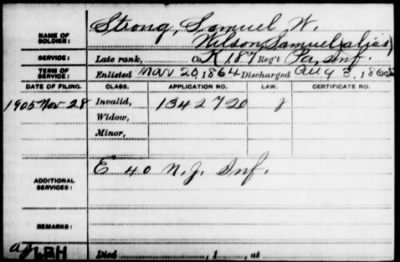 NAME OF SOLDIER: Strong, Samuel W.
Nilson, Samuel (alias)
SERVICE: Late rank, Co. K 187 Reg't Pa. Inf.
TERM OF SERVICE: Enlisted Mar 20, 1864 Discharged Aug 3, 1865
DATE OF FILING. CLASS. APPLICATION NO. LAW. CERTIFICATE NO.
1905 Nov. 28 Invalid, 1342720 J
Widow,
Minor,
ADDITIONAL SERVICES: E 40 N.J. Inf.
REMARKS:
Died , 1 , at